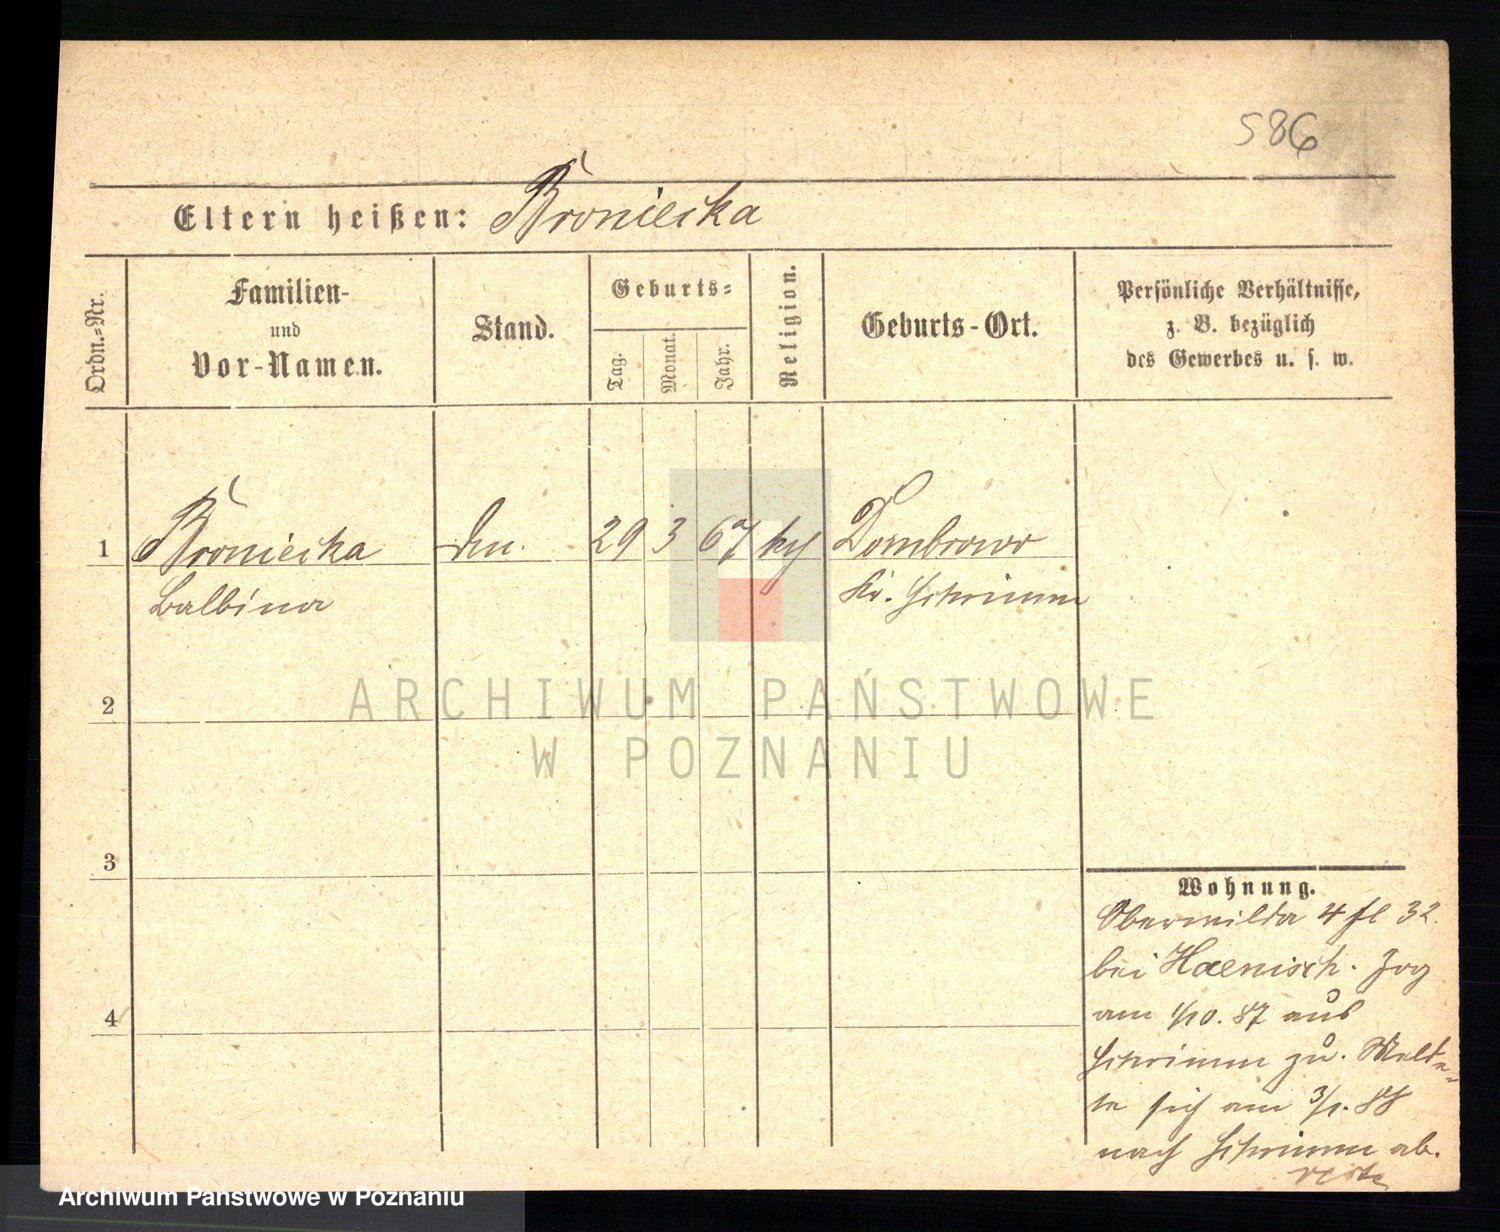 586
Eltern heißen: Broniecka
Ordn.-Nr.
Familien-
und
Vor-Namen.
Stand.
Geburts-
Tag.
Monat.
Jahr.
Religion.
Geburts-Ort.
Persönliche Verhältnisse,
z. B. bezüglich
des Gewerbes u. s. w.
1 Broniecka 29 3 67 Dombrowo
Balbina Kr. Schrimm
2
3
4
ARCHIWUM PAŃSTWOWE
W POZNANIU
Wohnung.
Oberwilda 4 fl 32
bei Haenisch. Zog
am 1/10. 87 aus
Schrimm zu. Melde-
te sich am 3/1. 88
nach Schrimm ab.
verte
Archiwum Państwowe w Poznaniu